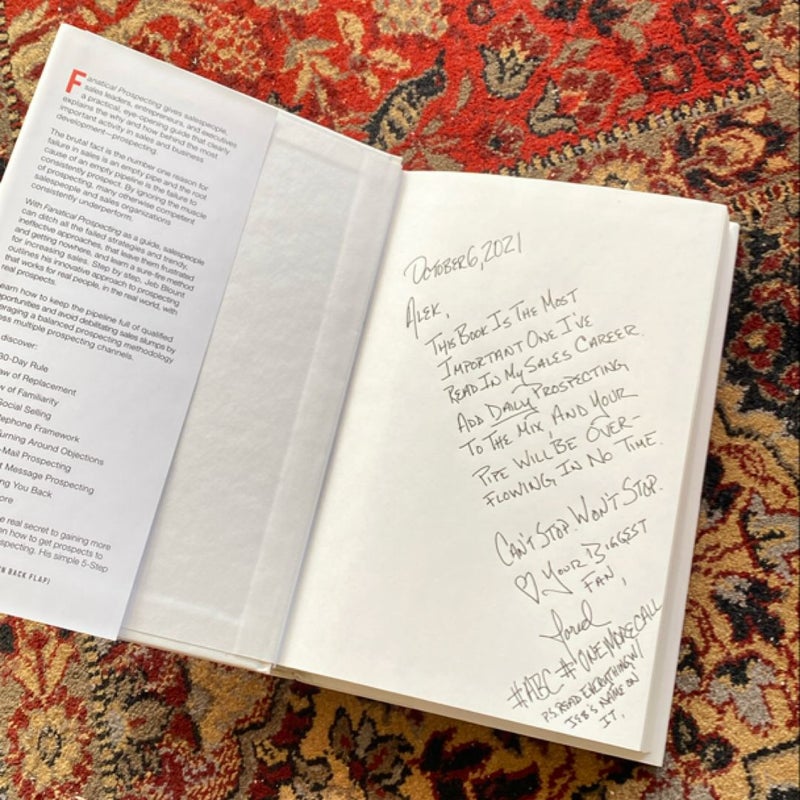 Fanatical Prospecting gives salespeople,
sales leaders, entrepreneurs, and executives
a practical, eye-opening guide that clearly
explains the why and how behind the most
important activity in sales and business
development—prospecting.
The brutal fact is the number one reason for
failure in sales is an empty pipe and the root
cause of an empty pipeline is the failure to
consistently prospect. By ignoring the muscle
of prospecting, many otherwise competent
salespeople and sales organizations
consistently underperform.
With Fanatical Prospecting as a guide, salespeople
can ditch all the failed strategies and trendy,
ineffective approaches, that leave them frustrated
and getting nowhere, and learn a sure-fire method
for increasing sales. Step by step, Jeb Blount
outlines his innovative approach to prospecting
that works for real people, in the real world, with
real prospects.
earn how to keep the pipeline full of qualified
pportunities and avoid debilitating sales slumps by
eraging a balanced prospecting methodology
ss multiple prospecting channels.
discover:
30-Day Rule
aw of Replacement
w of Familiarity
Social Selling
lephone Framework
urning Around Objections
-Mail Prospecting
t Message Prospecting
ng You Back
ore
e real secret to gaining more
en how to get prospects to
specting. His simple 5-Step
N BACK FLAP)
OCTOBER 6, 2021
ALEK,
THIS BOOK IS THE MOST
IMPORTANT ONE I'VE
READ IN MY SALES CAREER.
ADD DAILY PROSPECTING
TO THE MIX AND YOUR
PIPE WILL BE OVER-
FLOWING IN NO TIME.
CAN'T STOP WON'T STOP.
♡ YOUR BIGGEST
FAN,
Jared
#ABC #ONEMORECALL
P.S. READ EVERYTHING W/
JEB'S NAME ON
IT.